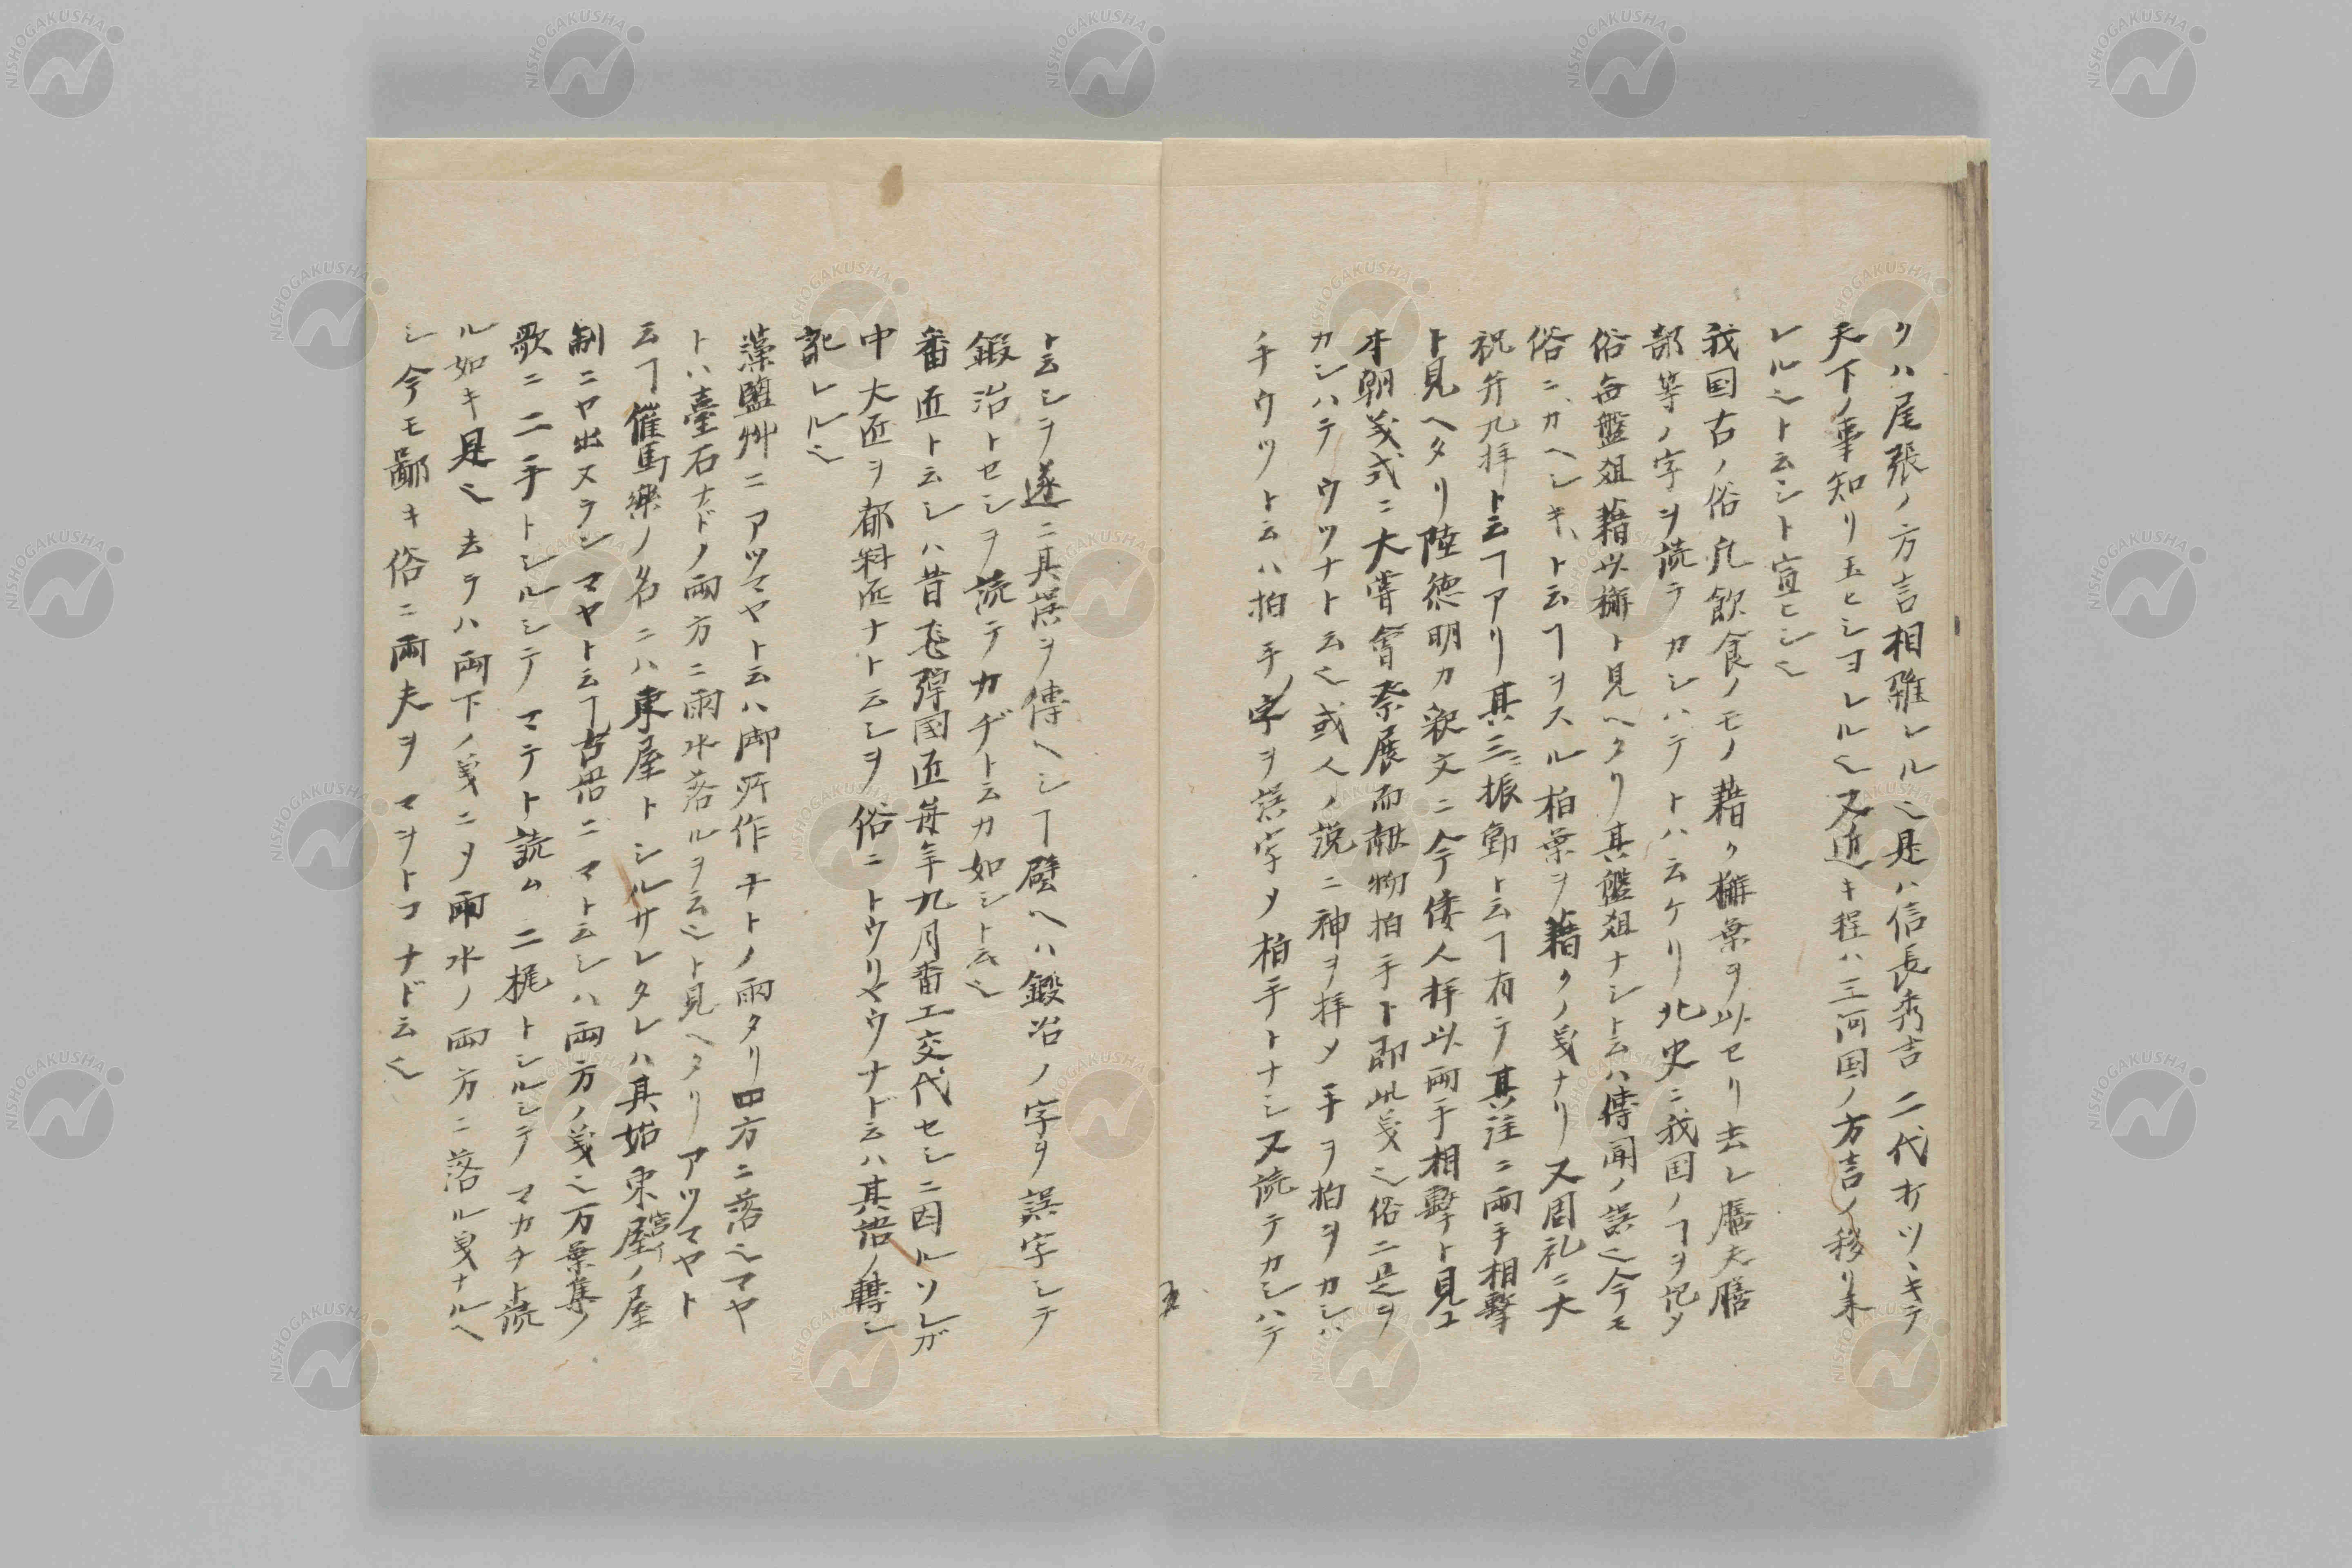 クハ尾張ノ方言相雜レル也是ハ信長秀吉二代オツヽキテ
天下ノ事知リ玉ヒシヨレル也又近キ程ハ三河国ノ方言ノ移リ来
レル也ト云シト宣ヒシ也
我国古ノ俗凡飲食ノモノ藉ク槲葉ヲ以セリ去レ膳夫膳
部等ノ字ヲ読テカシハテトハ云ケリ北史ニ我国ノヿヲ記メ
俗毎盤俎藉以檞ト見ヘタリ其盤俎ナシト云ハ傳聞ノ誤也今モ
俗ニカヘシキト云ヿヲスル柏葉ヲ藉クノ義ナリ又周礼ニ大
祝弁九拝ト云ヿアリ其三ニ振動ト云ヿ有テ其注ニ両手相撃
ト見ヘタリ陸德明カ釈文ニ今倭人拝以両手相擊ト見エ
本朝義式ニ大嘗會奉展而献物拍手ト即此義也俗ニ是ヲ
カシハテウツナト云也或人ノ説ニ神ヲ拝メ手ヲ拍ヲカシハ
チウツト云ハ拍手ノ字ヲ誤字メ柏手トナシ又読テカシハテ
ト云シヲ遂ニ其誤ヲ傳ヘシヿ譬ヘハ鍛冶ノ字ヲ誤字シテ
鍜治トセシヲ読テカヂト云カ如シト云シ
番匠ト云シハ昔飛彈國匠毎年九月番工交代セシニ因ルソレガ
中大匠ヲ都料匠ナト云シヲ俗ニトウリヤウナド云ハ其語ノ轉シ
訛レル也
藻鹽艸ニアツマヤト云ハ御所作ナトノ雨タリ四方ニ落也マヤ
トハ臺石ナドノ両方ニ雨水落ルヲ云也ト見ヘタリアツマヤト
云ヿ催馬樂ノ名ニハ東屋トシルサレタレハ其始東屋ノ屋
制ニヤ出スラシマヤト云ヿ古俗ニマト云シハ両方ノ義也万葉集ノ
歌ニ二手トシルシテマテト読ム二梶トシルシテマカチト読
ル如キ是也去ラハ両下ノ義ニメ雨水ノ両方ニ落ル義ナルヘ
シ今モ鄙キ俗ニ両夫ヲマヲトコナド云也